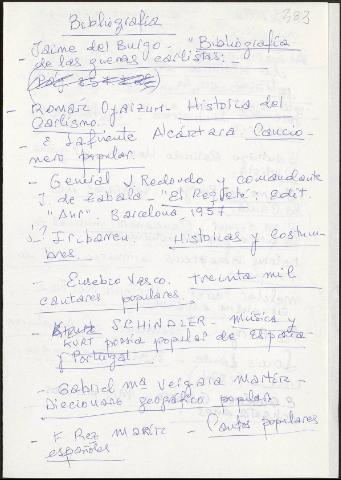 383
Bibliografía
- Jaime del Burgo - "Bibliografía
de las guerras carlistas: -
- Román Oyarzun - Historia del
Carlismo.
- E. Lafuente Alcántara. Cancio-
nero popular.
- General J Redondo y comandante
J. de Zabala - "El Requeté" edit.
"Ahr". Barcelona, 1957.
Iribarren - Historias y costum-
bres.
- Eusebio Vasco. Treinta mil
cantares populares.
- SCHINDLER - Música y
KURT poesía popular de España
y Portugal -
- Gabriel Mª Vergara Martín -
Diccionario geográfico popular
- F Rez Marín - Cantos populares
españoles